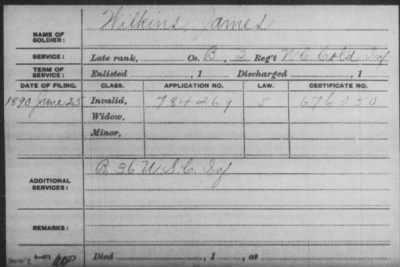 NAME OF SOLDIER: Wilkins, James
SERVICE: Late rank, Co. B, 2 Reg't N.C. Cold Inf
TERM OF SERVICE: Enlisted , 1 Discharged , 1
DATE OF FILING. CLASS. APPLICATION NO. LAW. CERTIFICATE NO.
1890 June 25 Invalid, 784269 J 676850
Widow,
Minor,
ADDITIONAL SERVICES: B 36 U.S.C. Inf
REMARKS:
Died , 1 , at